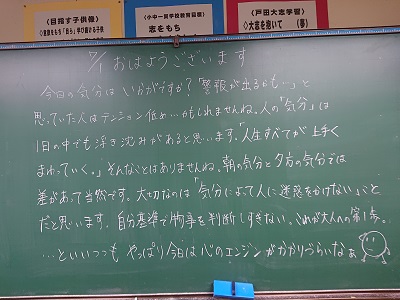 〈目指す子供像〉
◇夢をもち「自ら」学び続ける子供
〈小中一貫学校教育目標〉
志をもち
〈戸田大志学習〉
◇大志を抱いて （夢）
7/1 おはようございます
今日の気分はいかがですか？「警報が出るかも…」と
思っていた人はテンション低め…かもしれませんね。人の「気分」は
1日の中でも浮き沈みがあると思います。「人生すべてが上手く
まわっていく。」そんなことはありませんね。朝の気分と夕方の気分では
差があって当然です。大切なのは「気分によって人に迷惑をかけない」こと
だと思います。自分基準で物事を判断しすぎない。これが大人への第1歩。
…といいつつも やっぱり今日は心のエンジンがかかりづらいなぁ